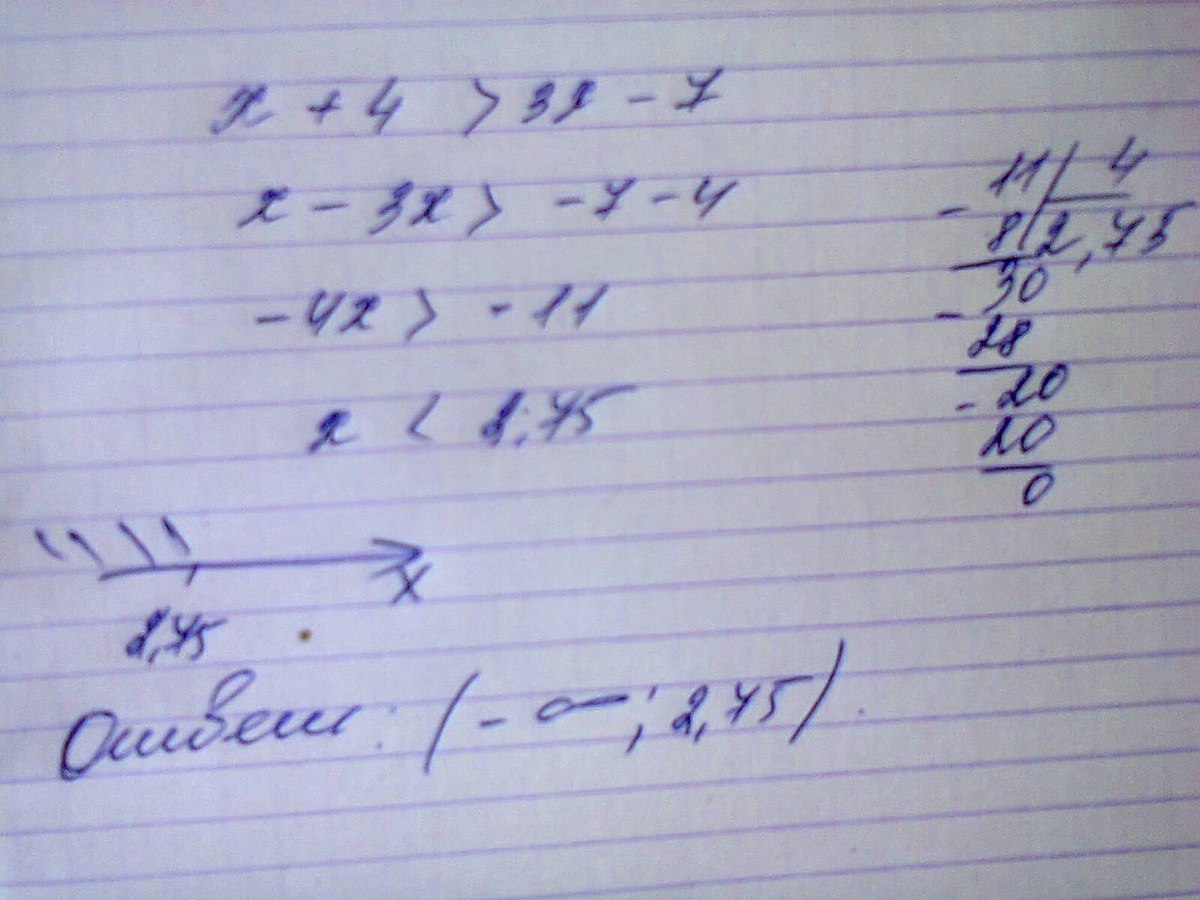 x + 4 > 3x - 7
x - 3x > -7 - 4
-4x > -11
x < 2,75
11 | 4
- 8 | 2,75
30
- 28
20
- 20
0
x
2,75
Ответ: (-∞; 2,75).